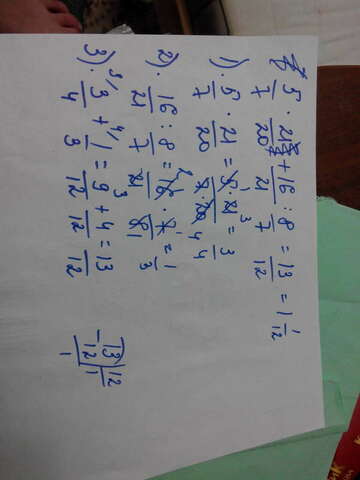 5/7 · 21/20 + 16/21 : 8/7 = 13/12 = 1 1/12
1). 5/7 · 21/20 = 5 · 21/7 · 20 = 3/4
2). 16/21 : 8/7 = 16/21 · 7/8 = 2/3
3). 3/4 + 1/3 = 9/12 + 4/12 = 13/12
13 | 12
- 12 | 1
1